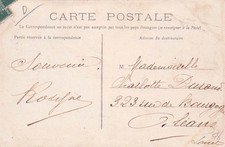 D
CARTE POSTALE
La Correspondance au recto n'est pas acceptée par tous les pays étrangers (se renseigner à la Poste)
Partie réservée à la correspondance
Adresse du destinataire
Souvenir
Roseline
M. Mademoiselle
Charlotte
323 rue de Bourgogne
Orléans
Loiret